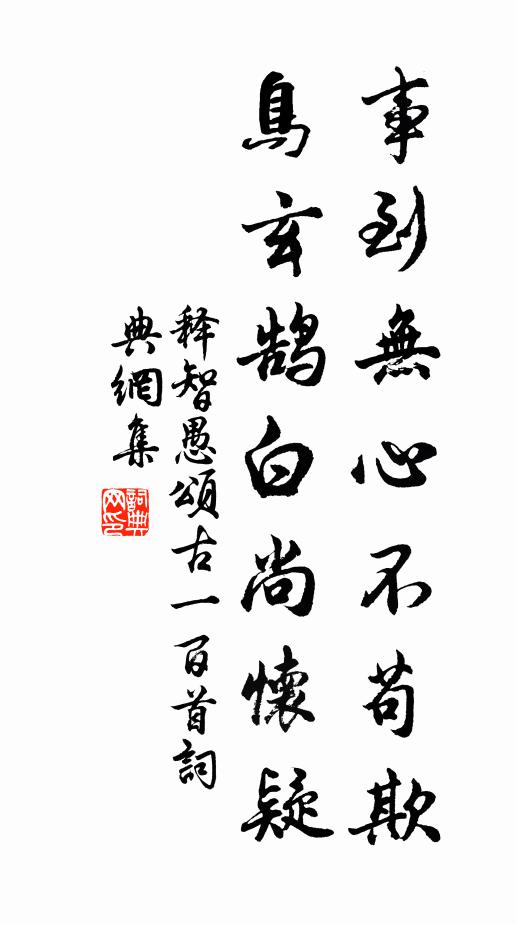 事到無心不苟欺
烏玄鹄白尚懷疑
释智愚頌古一百首詞
典網集
詞典
网印